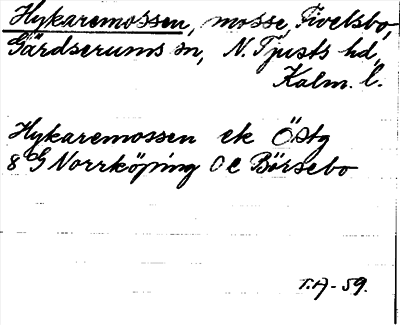 Hykaremossen, mosse, Fivelsbo,
Gärdserums sn, N. Tjusts hd,
Kalm. l.
Hykaremossen ek Östg
8 G Norrköping 0 e Börsebo
T.A-59.